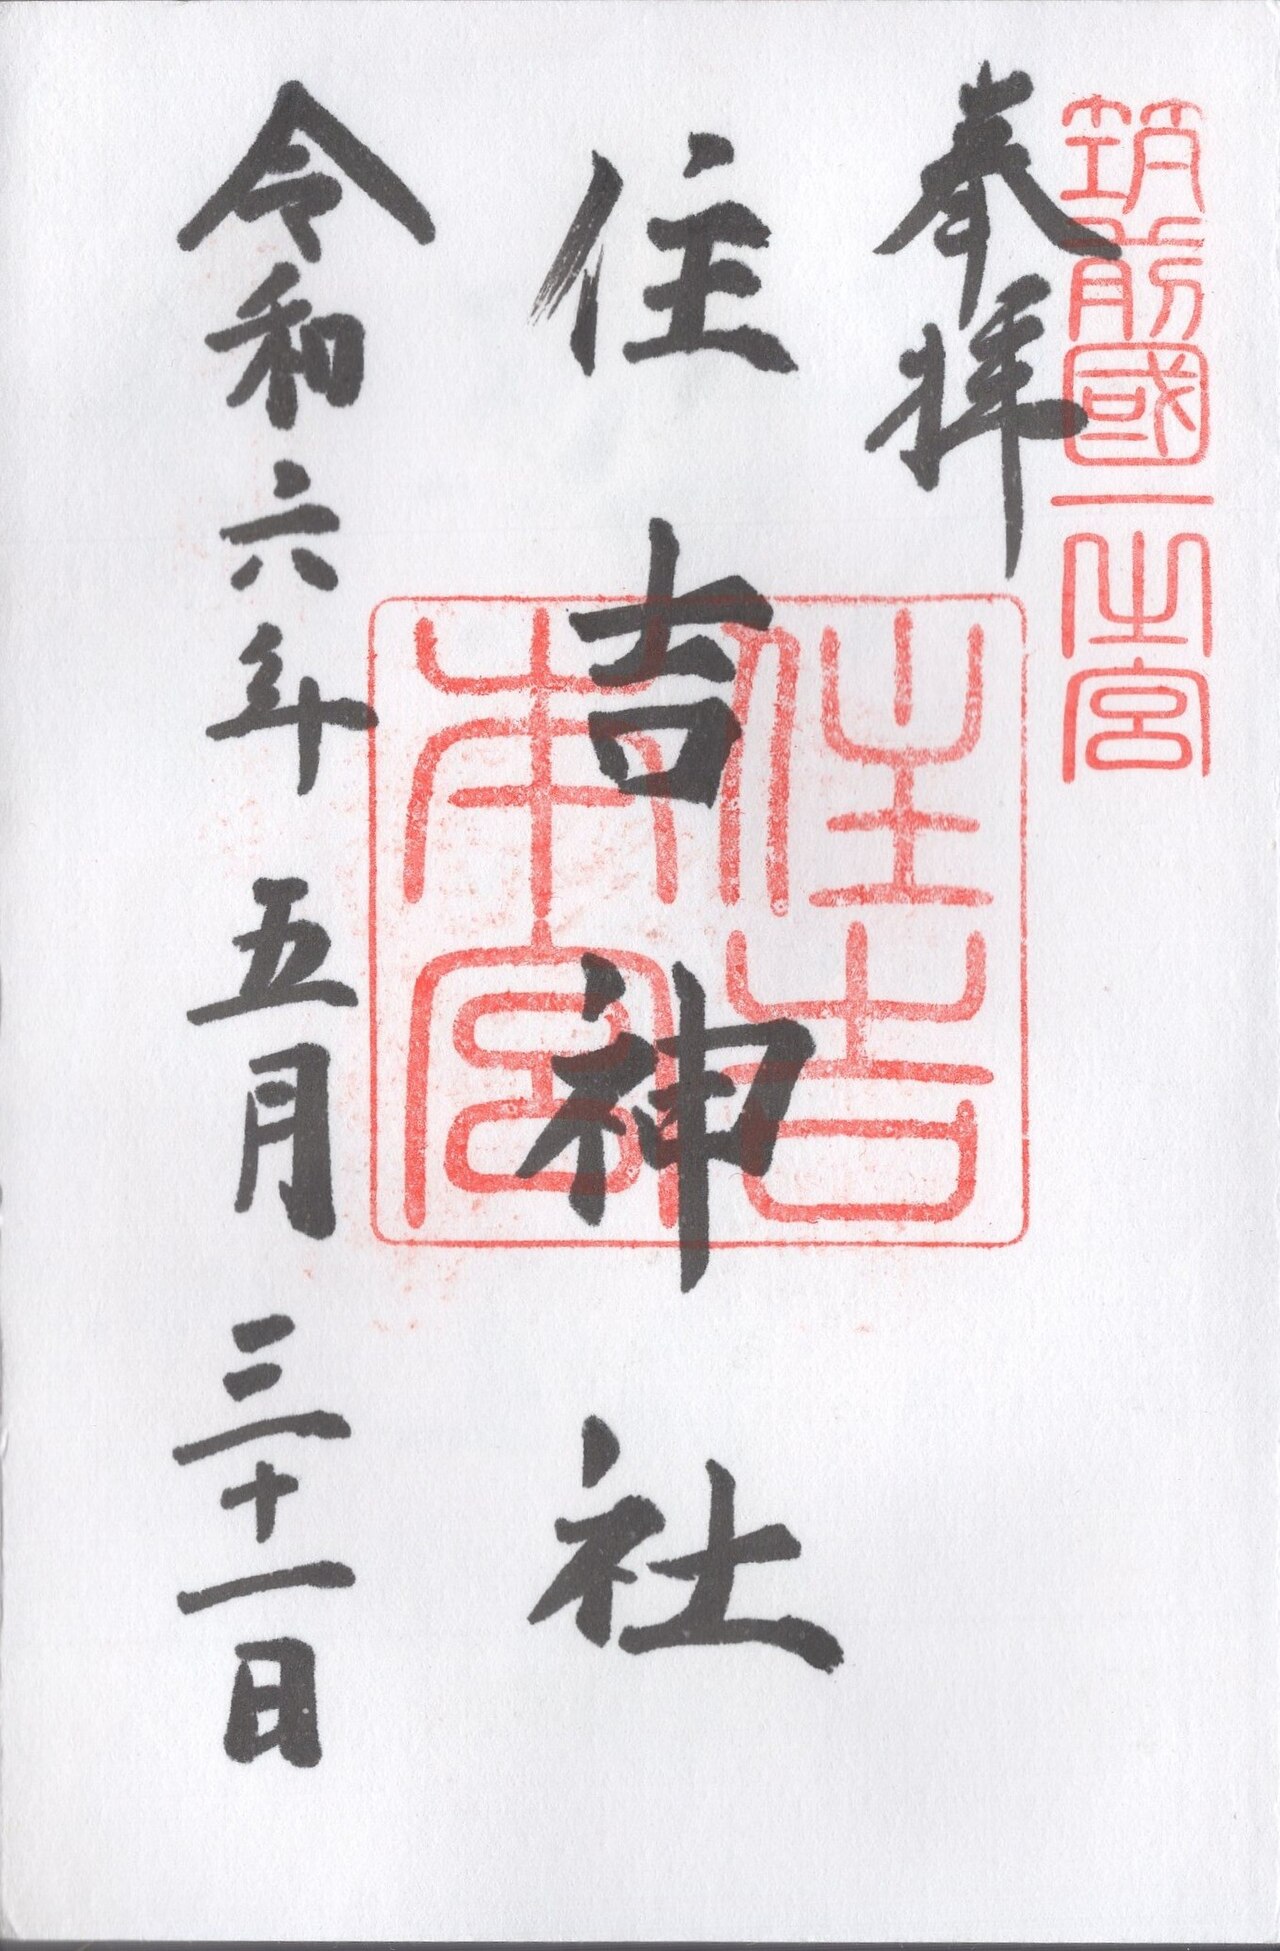 筑前國一之宮
奉拝
住吉神社
住吉
本宮
令和六年五月三十一日